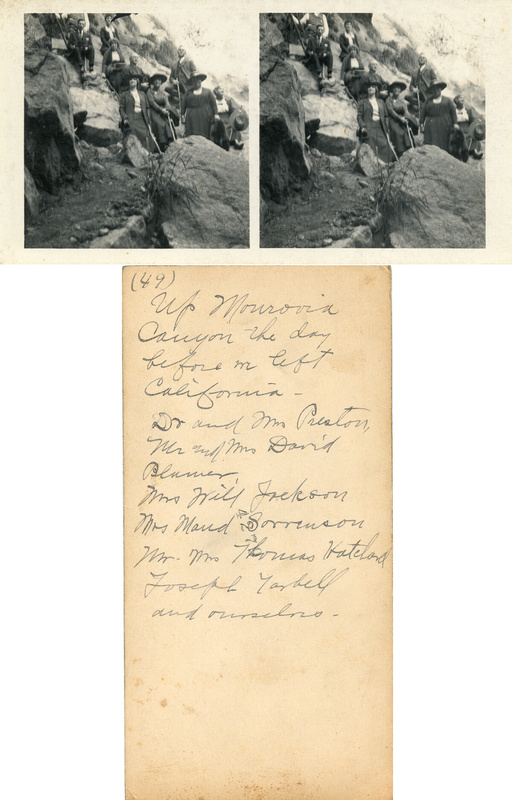 (49)
Up Monrovia
Canyon the day
before we left
California -
Dr and Mrs Preston,
Mr and Mrs David
Plumer,
Mrs Will Jackson
Mrs Maud Sorrenson
Mr. Mrs Thomas
Joseph Tarbell
and ourselves -